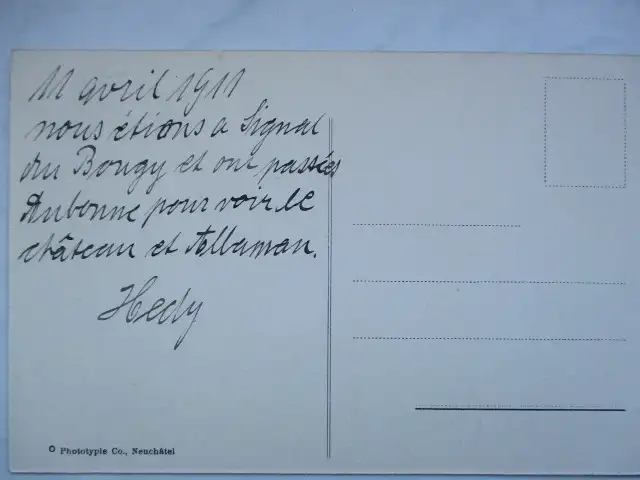 11 avril 1911
nous étions a Signal
du Bougy et ont passées
Aubonne pour voir le
château et Allaman.
Hedy
Phototypie Co., Neuchâtel